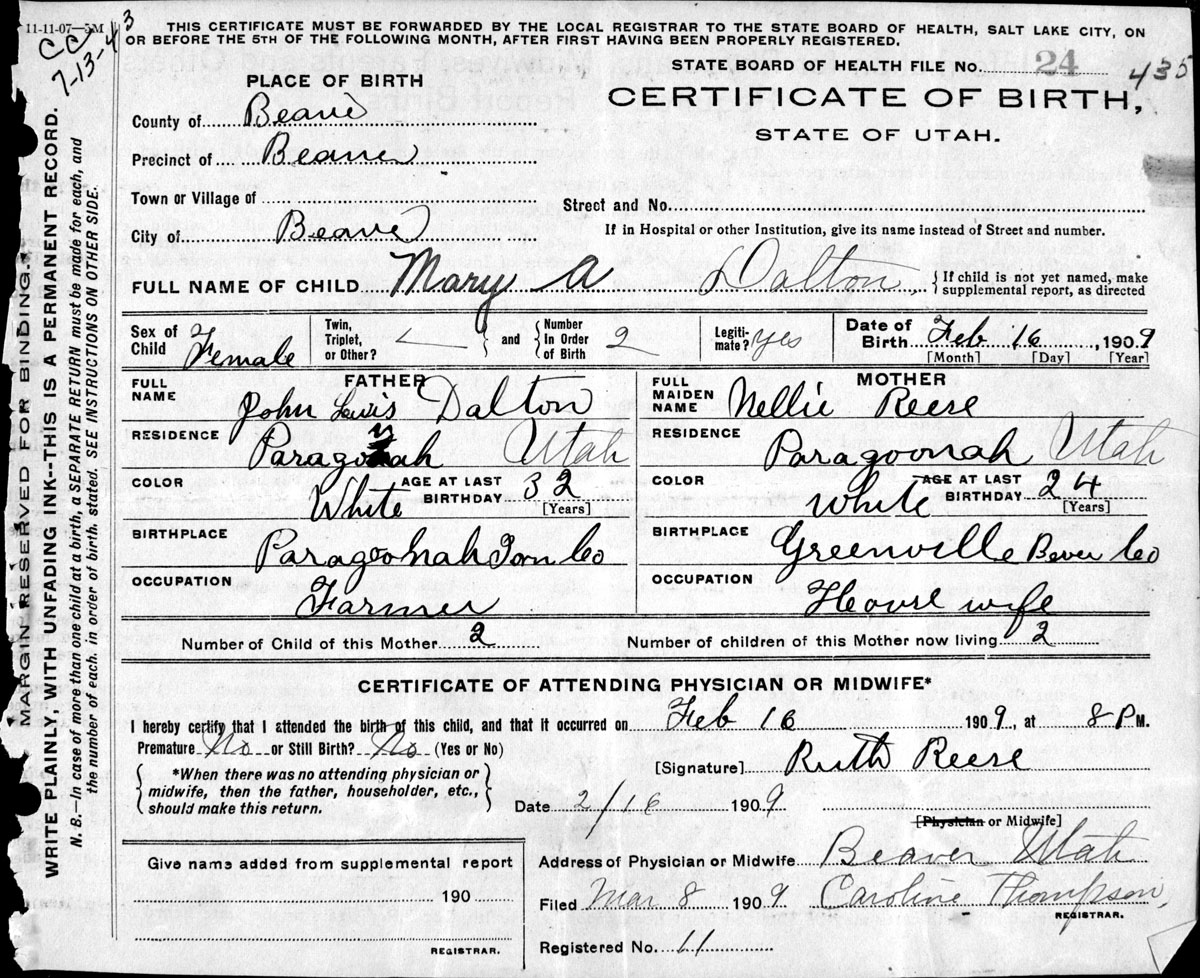 11-11-07—5M
CC
7-13-43
THIS CERTIFICATE MUST BE FORWARDED BY THE LOCAL REGISTRAR TO THE STATE BOARD OF HEALTH, SALT LAKE CITY, ON
OR BEFORE THE 5TH OF THE FOLLOWING MONTH, AFTER FIRST HAVING BEEN PROPERLY REGISTERED.
MARGIN RESERVED FOR BINDING.
WRITE PLAINLY, WITH UNFADING INK--THIS IS A PERMANENT RECORD.
N. B.—In case of more than one child at a birth, a SEPARATE RETURN must be made for each, and
the number of each. in order of birth. stated. SEE INSTRUCTIONS ON OTHER SIDE.
STATE BOARD OF HEALTH FILE No. 24 435
CERTIFICATE OF BIRTH,
STATE OF UTAH.
PLACE OF BIRTH
County of Beaver
Precinct of Beaver
Town or Village of
Street and No.
City of Beaver
If in Hospital or other Institution, give its name instead of Street and number.
FULL NAME OF CHILD Mary A Dalton { If child is not yet named, make
supplemental report, as directed
Sex of Child Female Twin, Triplet, or Other? and Number In Order of Birth 2 Legiti-mate? yes Date of Birth Feb 16, 1909
[Month] [Day] [Year]
FATHER MOTHER
FULL NAME John Lewis Dalton FULL MAIDEN NAME Nellie Reese
RESIDENCE Paragonah Utah RESIDENCE Paragoonah Utah
COLOR White AGE AT LAST BIRTHDAY 32 [Years] COLOR White AGE AT LAST BIRTHDAY 24 [Years]
BIRTHPLACE Paragoonah Iorn Co BIRTHPLACE Greenville Bever Co
OCCUPATION Farmer OCCUPATION House wife
Number of Child of this Mother 2 Number of children of this Mother now living 2
CERTIFICATE OF ATTENDING PHYSICIAN OR MIDWIFE*
I hereby certify that I attended the birth of this child, and that it occurred on Feb 16 1909, at 8 P M.
Premature No or Still Birth? No (Yes or No)
[Signature] Ruth Reese
*When there was no attending physician or
midwife, then the father, householder, etc.,
should make this return.
Date 2/16 1909
[Physician or Midwife]
Give name added from supplemental report
190
REGISTRAR.
Address of Physician or Midwife Beaver Utah
Filed Mar 8 1909 Caroline Thompson,
REGISTRAR.
Registered No. 11